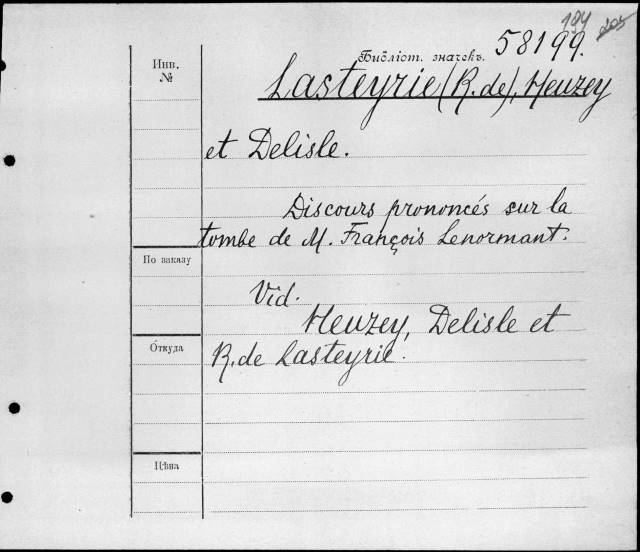 194 205
58199.
Библіот. значекъ.
Инв.
№
Lasteyrie (R. de), Heuzey
et Delisle.
Discours prononcés sur la
tombe de M. François Lenormant.
По заказу
Vid.
Heuzey, Delisle et
Откуда
R. de Lasteyrie.
Цѣна